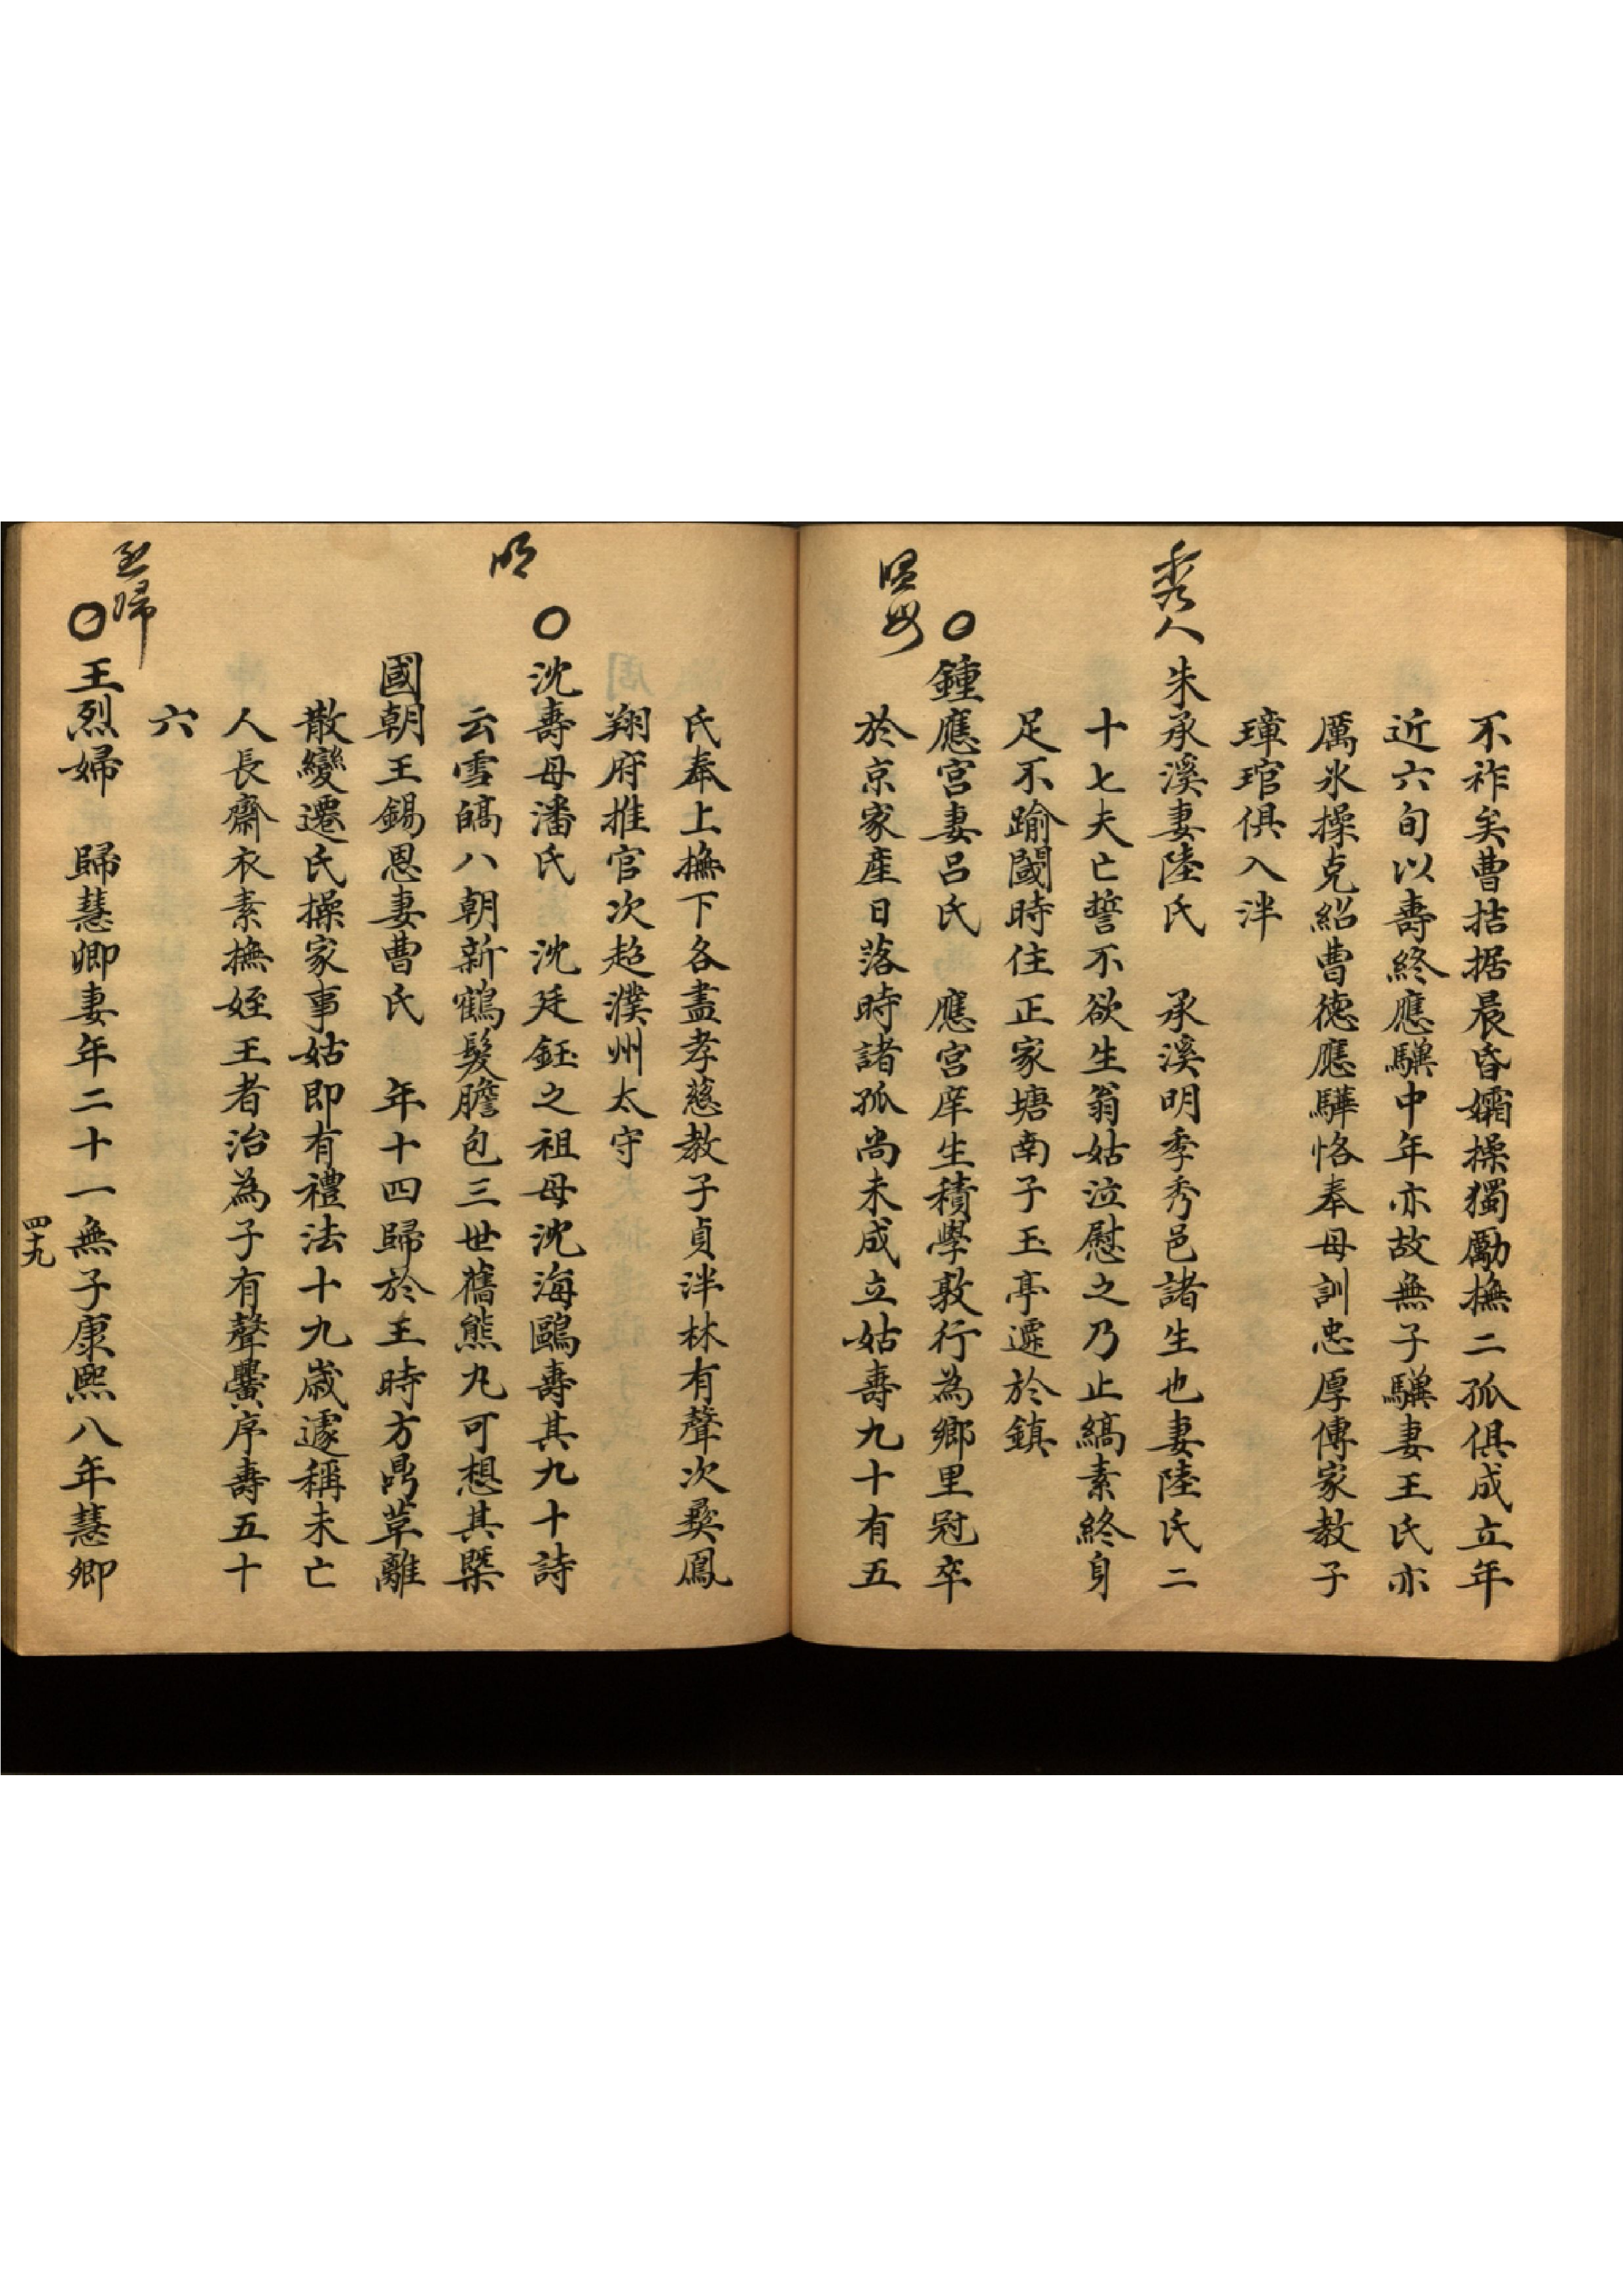 不祚矣曹拮据晨昏孀操獨勵撫二孤俱成立年
近六旬以壽終應驥中年亦故無子驥妻王氏亦
厲氷操克紹曹德應驊恪奉母訓忠厚傳家教子
璋琯俱入泮
秀人
朱承溪妻陸氏　承溪明季秀邑諸生也妻陸氏二
十七夫亡誓不欲生翁姑泣慰之乃止縞素終身
足不踰閾時住正家塘南子玉亭遷於鎮
○鍾應宮妻呂氏　應宮庠生積學敦行為鄉里冠卒
於京家產日落時諸孤尚未成立姑壽九十有五
氏奉上撫下各盡孝慈教子貞泮林有聲次龑鳳
翔府推官次超濮州太守
○沈壽母潘氏　沈廷鈺之祖母沈海鷗壽其九十詩
明
云雪皜八朝新鶴髮膽包三世舊熊丸可想其槩
國朝王錫恩妻曹氏　年十四歸於王時方鼎革離
散變遷氏操家事姑即有禮法十九歲遽稱未亡
人長齋衣素撫姪王者治為子有聲黌序壽五十
六
○王烈婦　歸慧卿妻年二十一無子康熙八年慧卿
四十九